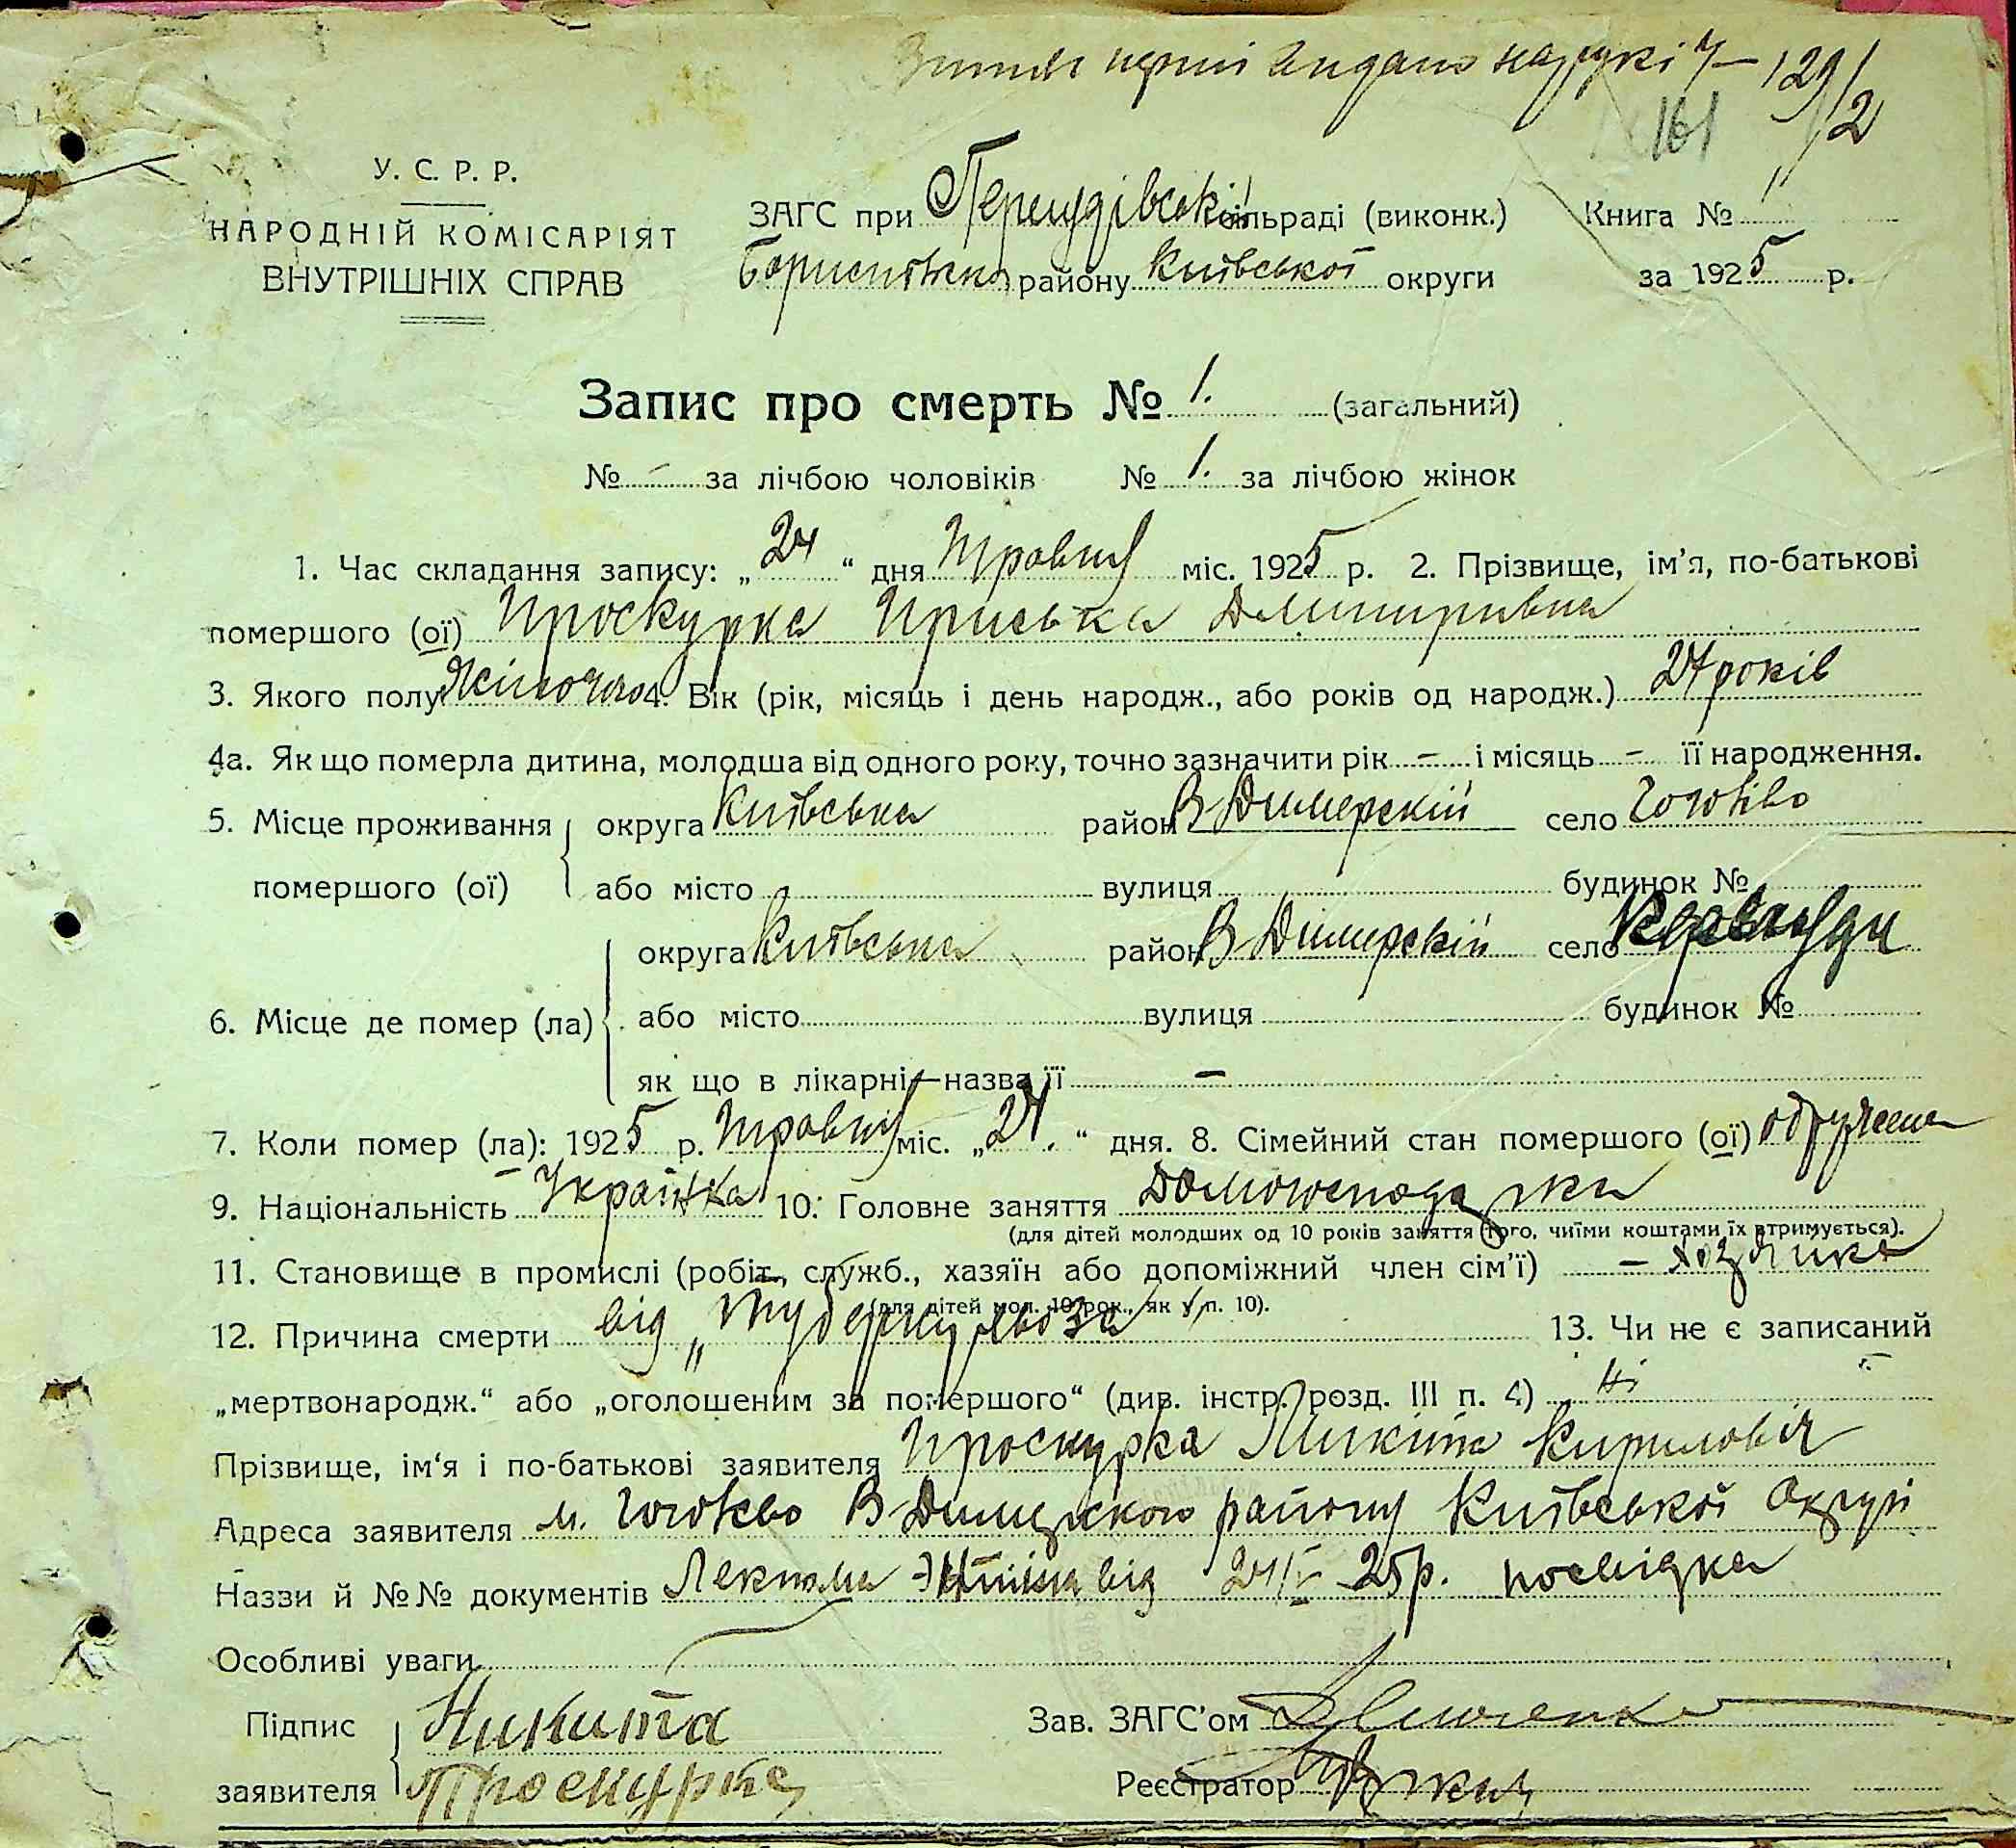 129/2
161
У. С. Р. Р.
НАРОДНІЙ КОМІСАРІЯТ
ВНУТРІШНІХ СПРАВ
ЗАГС при сільраді (виконк.) Книга №
району Київської округи за 1925 р.
Запис про смерть № 1. (загальний)
№ - за лічбою чоловіків № 1. за лічбою жінок
1. Час складання запису: „24“ дня Травня міс. 1925 р. 2. Прізвище, ім'я, по-батькові
помершого (ої) Проскурка Приська Дмитрівна
3. Якого полу Жіночого 4. Вік (рік, місяць і день народж., або років од народж.) 24 років
4а. Як що померла дитина, молодша від одного року, точно зазначити рік - і місяць - її народження.
5. Місце проживання округа Київська район В-Димерскій село
помершого (ої) або місто вулиця будинок №
округа Київська район В-Димерскій село
6. Місце де помер (ла) або місто вулиця будинок №
як що в лікарні—назва її -
7. Коли помер (ла): 1925 р. Травня міс. „24.“ дня. 8. Сімейний стан помершого (ої) одружена
9. Національність Українка 10. Головне заняття
(для дітей молодших од 10 років заняття того, чиїми коштами їх втримується).
11. Становище в промислі (робіт., служб., хазяїн або допоміжний член сім'ї) - хозяйка
(для дітей мол. 10 рок., як у п. 10).
12. Причина смерти від „Туберкульоза“ 13. Чи не є записаний
„мертвонародж.“ або „оголошеним за помершого“ (див. інстр. розд. III п. 4) Ні
Прізвище, ім'я і по-батькові заявителя Проскурка Микита Кирилович
Адреса заявителя В-Димерского району Київської Округи
Назви й №№ документів від 24/V 25р. посвідка
Особливі уваги
Підпис Никита Зав. ЗАГС'ом
заявителя Проскурка Реєстратор